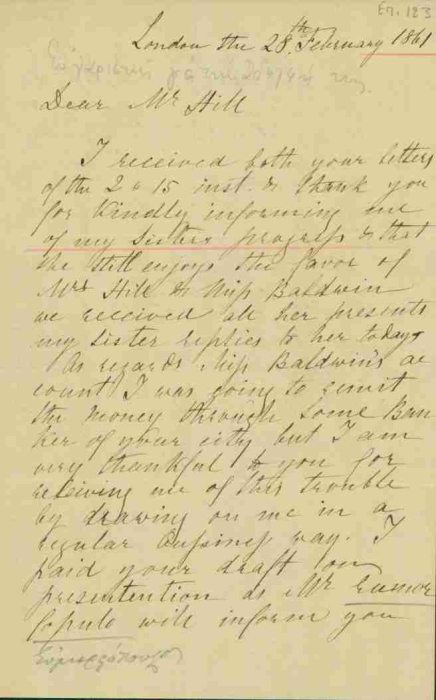 Επ. 123
London the 28th February 1861
Dear Mr Hill
I received both your letters
of the 2 & 15 inst. & thank you
for kindly informing me
of my sisters progress & that
she still enjoys the favor of
Mrs Hill & Miss Baldwin
we received all her presents
my sister replies to her today
As regards Miss Baldwin's ac
count I was going to remit
the money through some Ban
ker of your city but I am
very thankful to you for
relieving me of this trouble
by drawing on me in a
regular business way. I
paid your draft on
presentention as Mr Eumor
fopulo will inform you
Ευμορφόπουλος